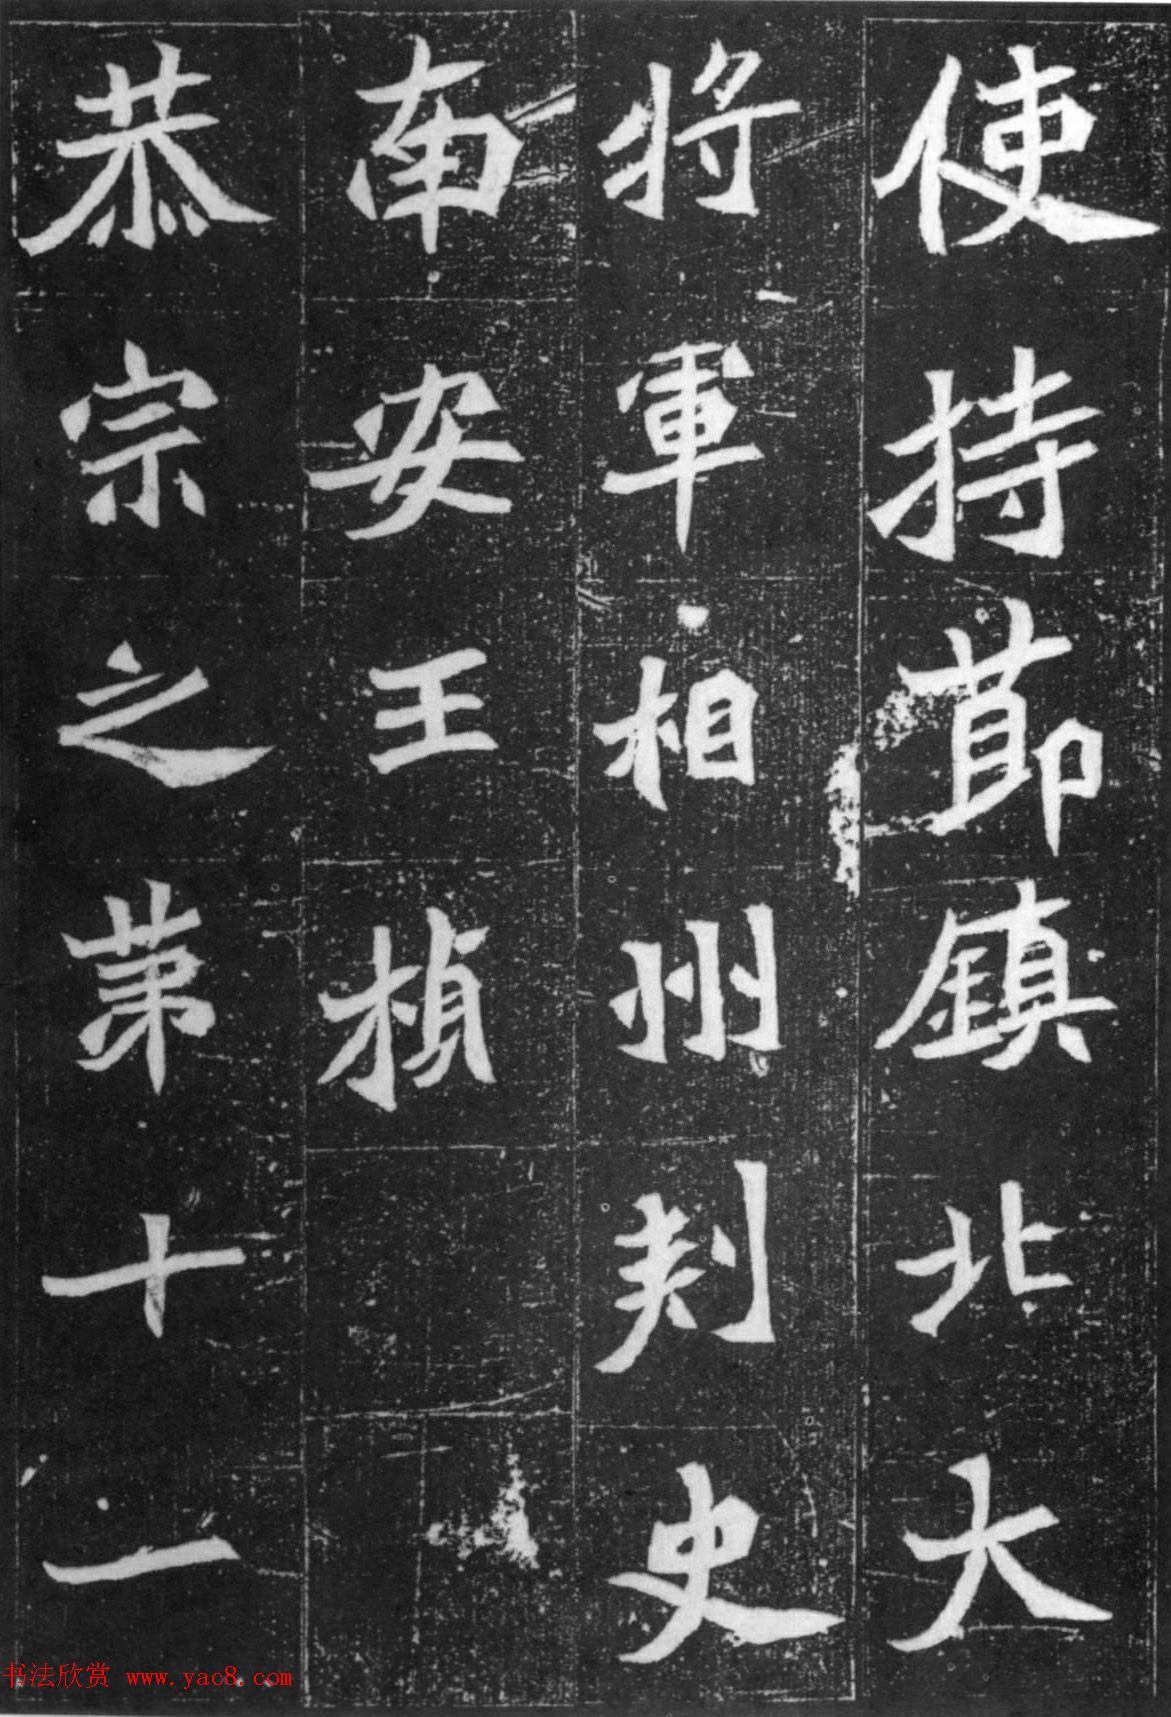 使持節鎮北大
將軍相州刺史
南安王楨
恭宗之第十一
书法欣赏 www.yac8.com